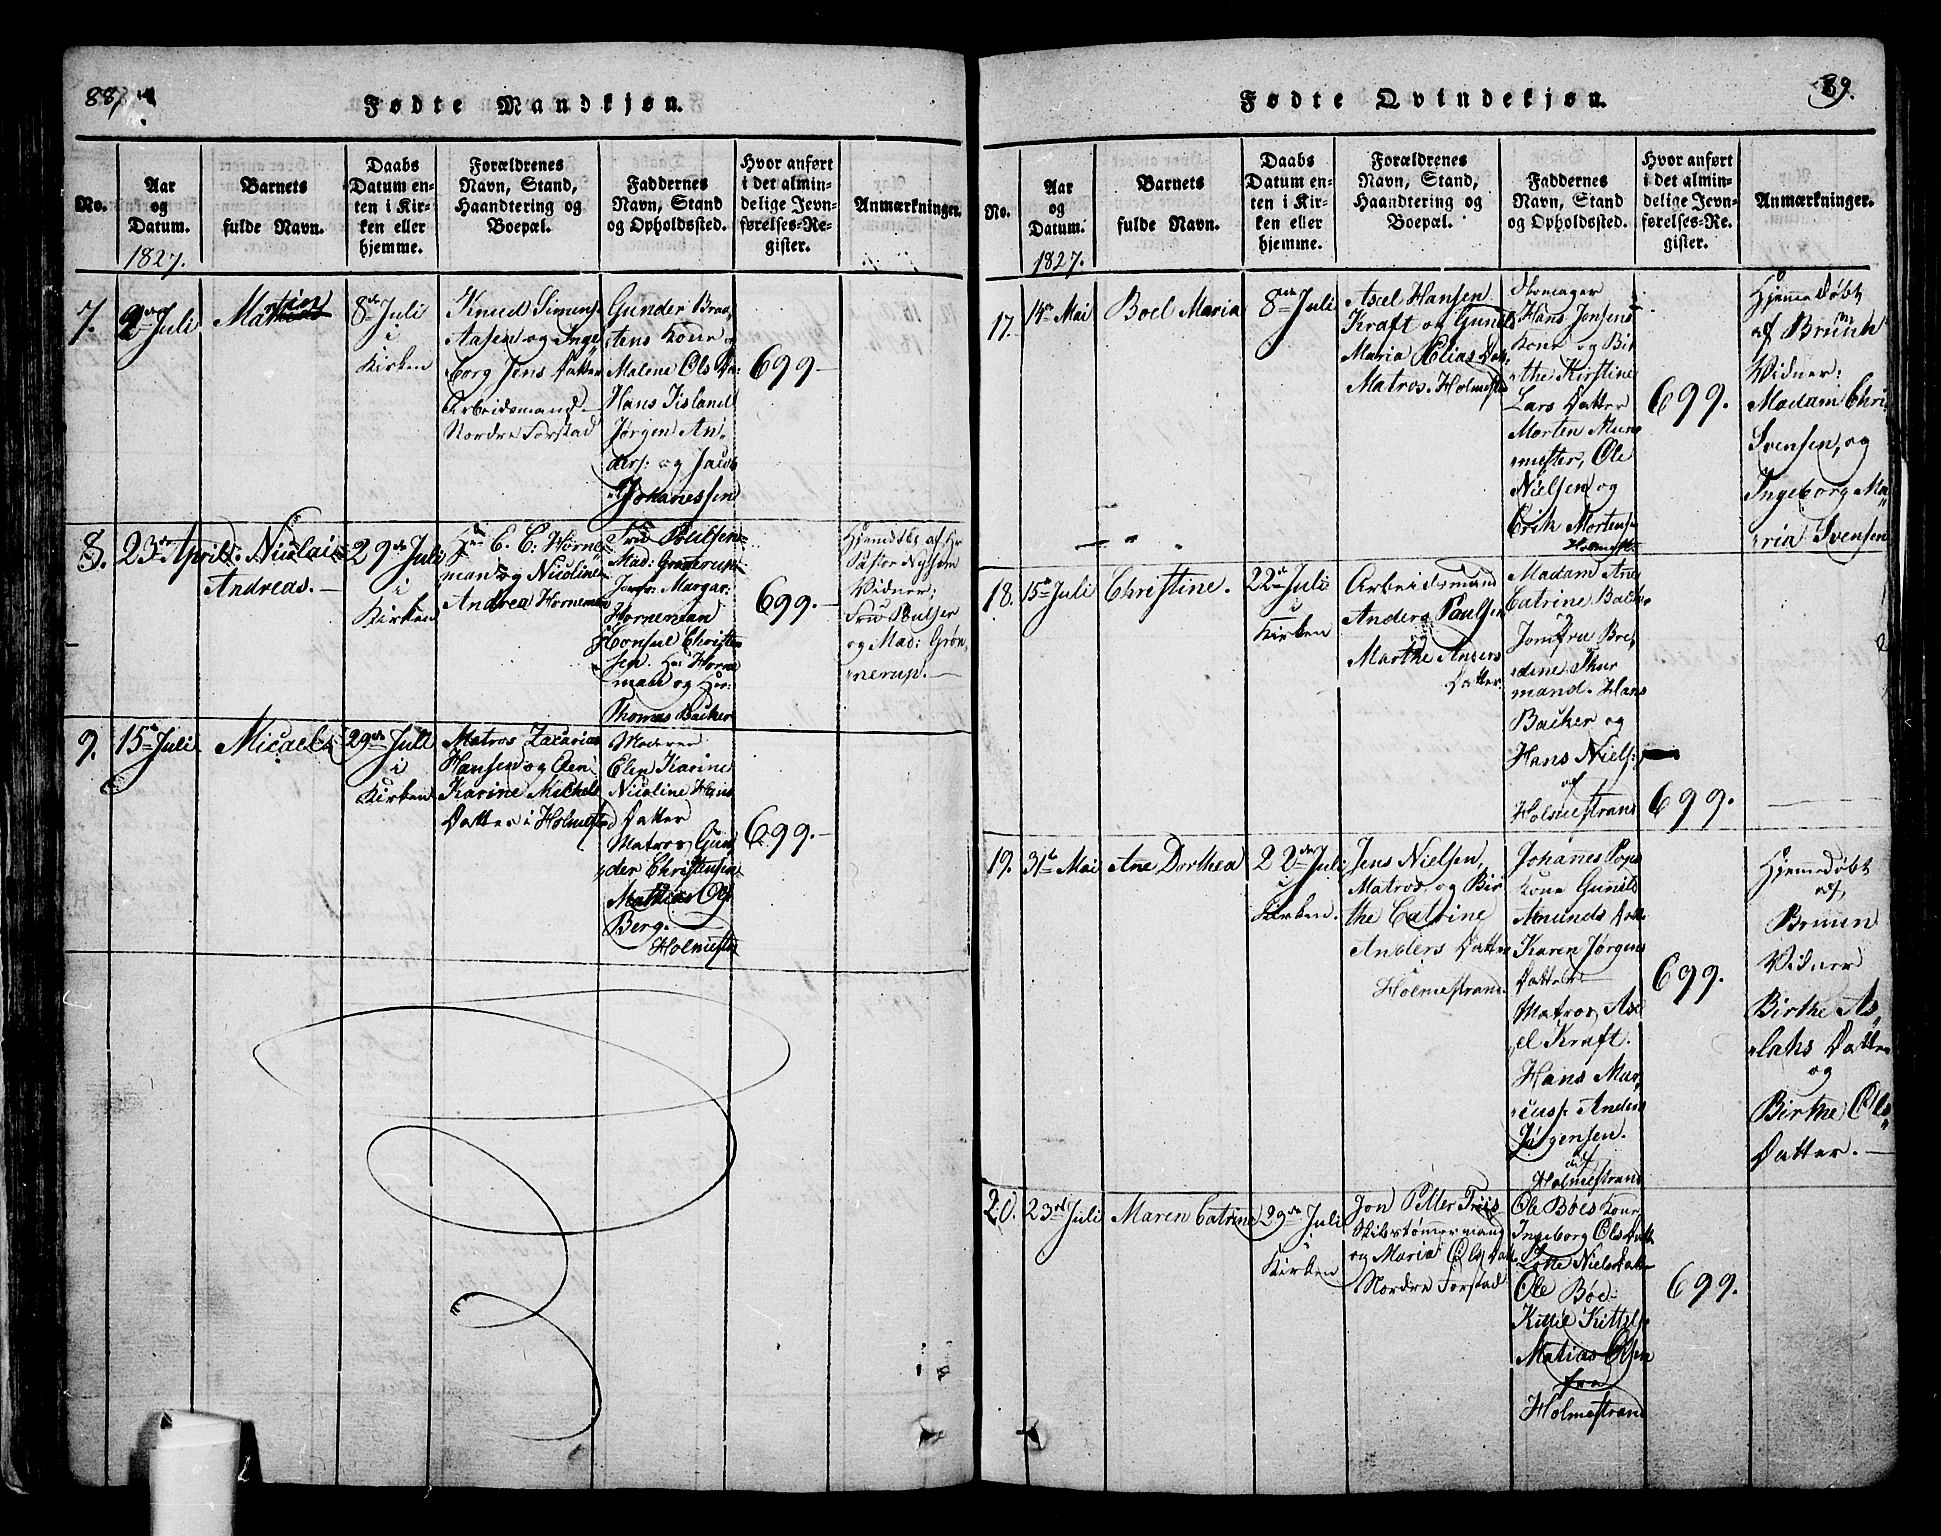 88.
Fødte Mandkjøn.
No.
Aar
og
Datum.
1827.
Barnets
fulde Navn.
Daabs
Datum en-
ten i Kir-
ken eller
hjemme.
Forældrenes
Navn, Stand,
Haandtering og
Boepæl.
Faddernes
Navn, Stand
og Opholdssted.
Hvor anført
i det almin-
delige Jevn-
førelses-Re-
gister.
Anmærkninger.
7.
2den Juli
Martin
8de Juli
i
Kirken
Knud Simens
Aasen og Inge
borg Jens Datter
Arbeidsmand
Nordre Forstad
Gunder Braa,
tens Kone og
Malene Ols Da:
Hans Iisland
Jørgen An,
ders: og Jacob
Johanessen
699
8.
23de April
Nicolai
Andreas.
29de Juli
i
Kirken
Hr. E. C. Horne,
man og Nicoline
Andrea Horneman
Fru Poulsen
Mad: Grønerup
Jomfr: Margar:
Horneman
Consul Christen
sen. Hr. Horne
man og Hr:
Thomas Backer
699.
Hjemdøbt af Hr
Pastor
Vidner:
Fru Poulsen
og Mad: Grøn,
nerup.
9.
15de Juli
Micael
29de Juli
i
Kirken
Matros Zacarias
Hansen og Elen
Karine Michels
Datter i Holmestrd
Moderen
Elen Karine
Nicoline Hans
Datter
Matros Gun,
der Christensen
Mathias Ols
Berg.
Holmestrd
699.
89.
Fødte Qvindekjøn.
No.
Aar
og
Datum.
1827.
Barnets
fulde Navn.
Daabs
Datum en-
ten i Kir-
ken eller
hjemme.
Forældrenes
Navn, Stand,
Haandtering og
Boepæl.
Faddernes
Navn, Stand
og Opholdssted.
Hvor anført
i det almin-
delige Jevn-
førelses-Re-
gister.
Anmærkninger.
17.
14de Mai
Boel Maria
8de Juli
Axel Hansen
Kraft og Gunild
Maria Elias Dat:
Matros. Holmestrd
Skomager
Hans Jensens
Kone og Bir
the Kirstine
Lars Datter
Morten Muur
mester, Ole
Nielsen og
Erik Mortensen
Holmestr.
699.
Hjemme Døbt
af Bruun
Vidner:
Madam Chri
Svensen, og
Ingeborg Ma
ria Svensen
18.
15de Juli
Christine.
22de Juli
i
Kirken
Arbeidsmand
Anders Paulsen
Marthe Anders
Datter
Madam Ane
Catrine Backe,
Jomfru Bre,
dine Thur
mand. Hans
Backer og
Hans Niels:
af
Holmestrand
699.
19.
31te Mai
Ane Dorthea
22de Juli
i
Kirken.
Jens Nielsen,
Matros og Bir
the Catrine
Anders Datter
i
Holmestrand.
Johannes Pops
Kone Gunild
Amunds Datter
Karen Jørgens
Datter
Matros Ax
el Kraft.
Hans Mar,
cuss. Anders
Jørgensen.
af
Holmestrand
699.
Hjemmedøbt
af,
Bruun
Vidner
Birthe As,
laks Datter
og
Birthe Ols
Datter.
20.
23de Juli
Maren Catrine
29de Juli
i
Kirken
Jon Petter Friis
Skibstømmermand
og Maria Ols Datter
Nordre Forstad
Ole Böes Kone
Ingeborg Ols Datt
Lotte Niels Datter
Ole Böe:
Kittil Kittels
Matias Olsen
fra
Holmestrand
699.